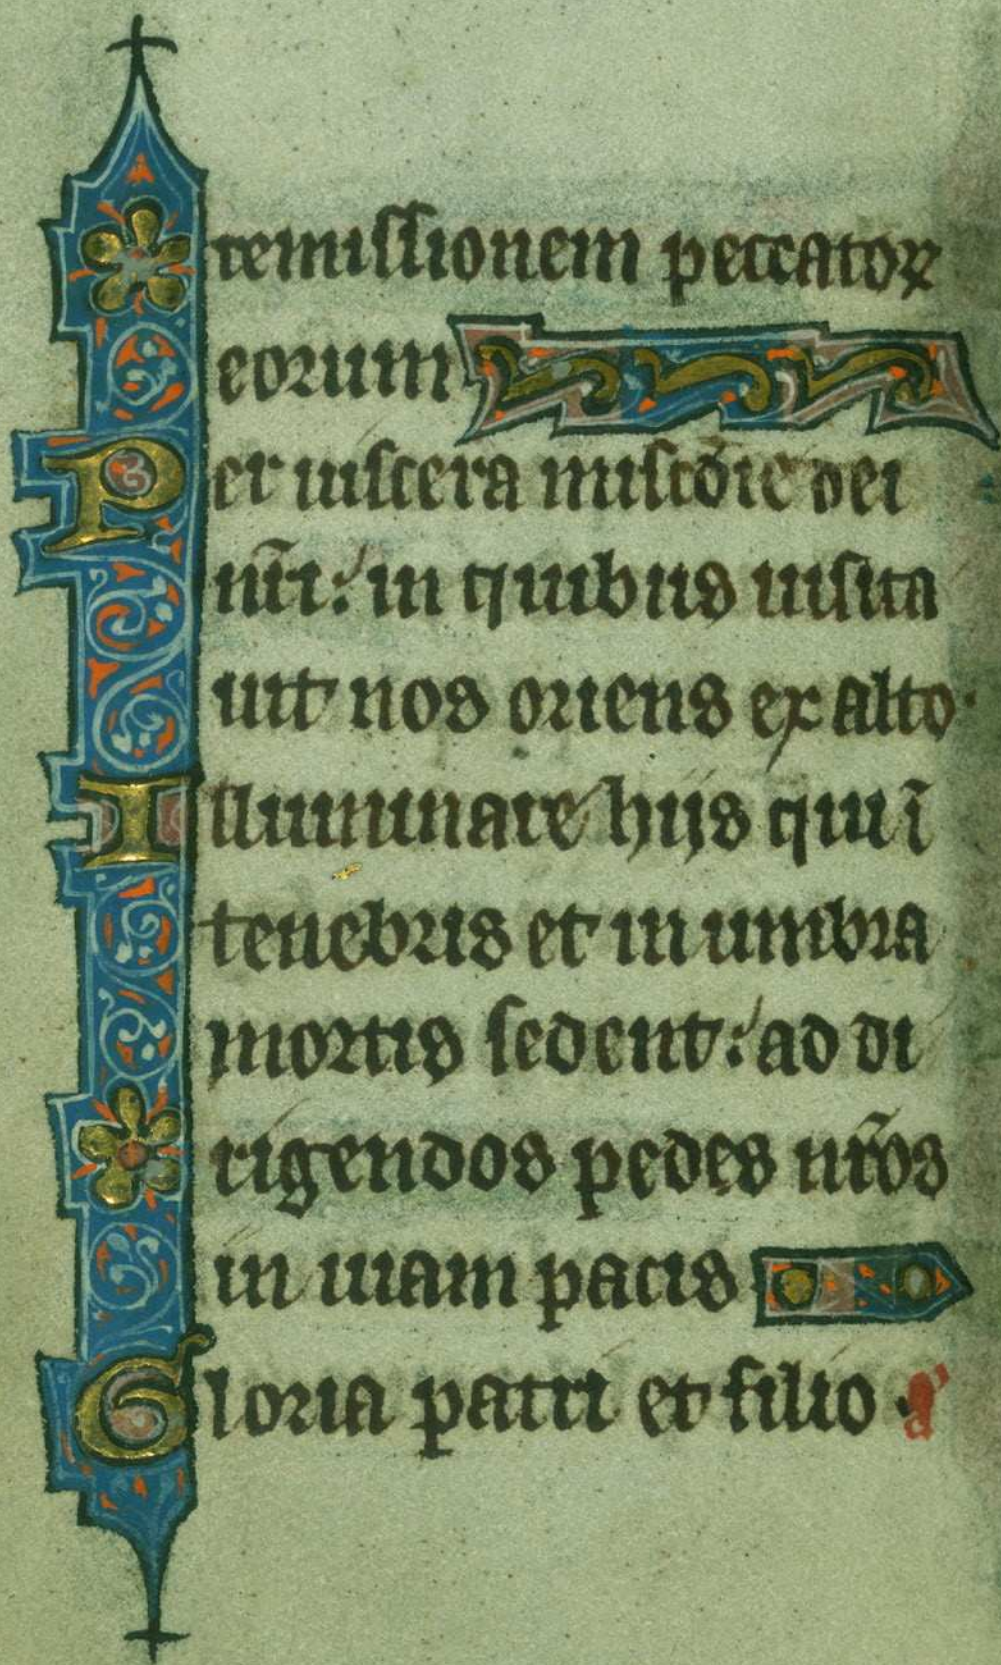 remissionem peccatoꝝ
eorum
Per uiscera misc̄die dei
nr̄i: in quibus uisita
uit nos oriens ex alto.
Illuminare hijs qui ī
tenebris et in umbra
mortis sedent: ad di
rigendos pedes nr̄os
in uiam pacis
Gloria patri et filio.